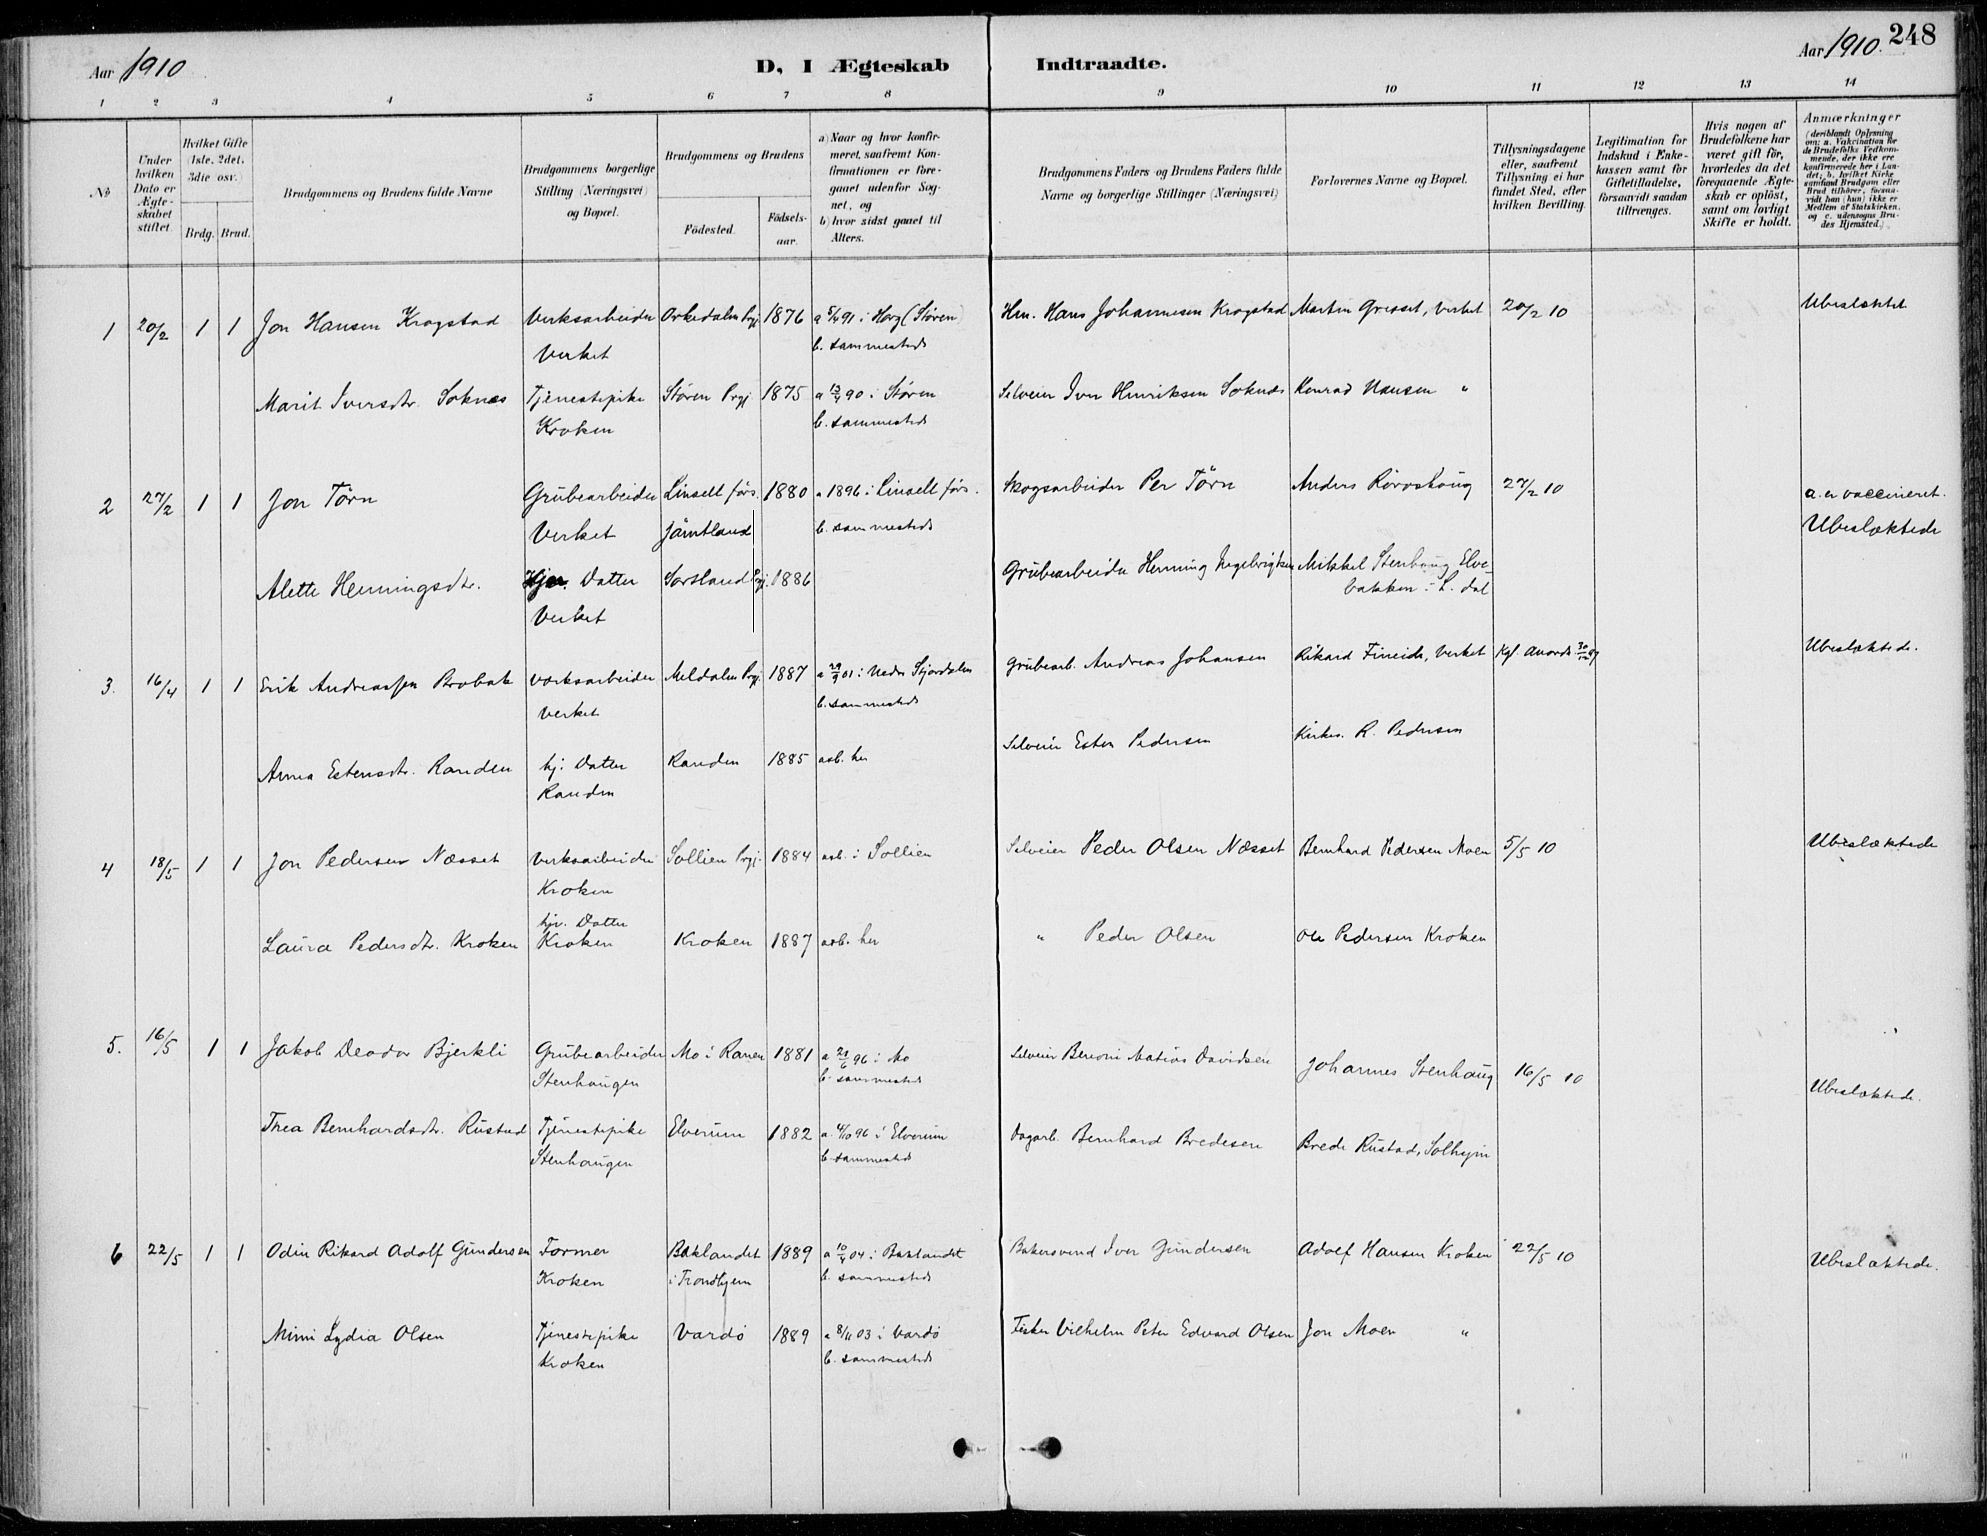 Aar 1910
D, I Ægteskab Indtraadte.
Aar 1910. 248
1 2 3 4 5 6 7 8 9 10 11 12 13 14
№
Under hvilken Dato er Ægteskabet stiftet.
Hvilket Gifte (1ste, 2det, 3die osv.)
Brdg. Brud.
Brudgommens og Brudens fulde Navne
Brudgommens borgerlige Stilling (Næringsvei) og Bopæl.
Brudgommens og Brudens
Födested.
Födselsaar.
a) Naar og hvor konfirmeret, saafremt Konfirmationen er foregaaet udenfor Sognet, og
b) hvor sidst gaaet til Alters.
Brudgommens Faders og Brudens Faders fulde Navne og borgerlige Stillinger (Næringsvei)
Forlovernes Navne og Bopæl.
Tillysningsdagene eller, saafremt Tillysning ei har fundet Sted, efter hvilken Bevilling.
Legitimation for Indskud i Enkekassen samt for Giftetilladelse, forsaavidt saadan tiltrænges.
Hvis nogen af Brudefolkene har været gift för, hvorledes da det foregaaende Ægteskab er oplöst, samt om lovligt Skifte er holdt.
Anmærkninger
(deriblandt Oplysning om: a. Vakcination for de Brudefolks Vedkommende, der ikke ere konfirmerede her i Landet; b. hvilket Kirkesamfund Brudgom eller Brud tilhörer, forsaavidt han (hun) ikke er Medlem af Statskirken, og c. udensogns Brudes Hjemsted.)
1 20/2 1 1 Jon Hansen Krogstad Verksarbeider Orkedalen Prgj. 1876 a 5/4 91 i Horg (Støren) Hm. Hans Johannesen Krogstad Martin Gresset, Verket 20/2 10 Ubeslektet
Verket b. sammesteds
Marit Iversdtr. Soknæs Tjenestepike Støren Prgj. 1875 a 13/4 90 i Støren Selveier Iver Henriksen Soknæs Konrad Hansen "
Kroken b. sammesteds
2 27/2 1 1 Jon Törn Grubearbeider Linsell förs. 1880 a 1896 i Linsell förs. Skogsarbeider Per Törn Anders Røroshaug 27/2 10 a. er vaccineret.
Verket Jämtland b. sammesteds Ubeslæktede
Alette Henningsdtr. Hjv. Datter Sørsland Prgj. 1886 Grubearbeider Henning Ingebrigtsen Mikkel Stenhaug Elvebakken i L. dal
Verket
3. 16/4 1 1 Erik Andreassen Brobak Verksarbeider Meldalen Prgj. 1887 a 29/9 01 i Nedre Stjørdalen Grubearb. Andreas Johansen Rikard Fineide, Verket Kgl. Anordn. Ubeslæktede.
Verket b. sammesteds
Anna Estensdtr. Randen hj. Datter Randen 1885 a o b. her Selveier Esten Pedersen Kirkes. R. Pedersen
Randen
4 18/5 1 1 Jon Pedersen Næsset Verksarbeider Sollien Prgj. 1884 a o b. i Sollien Selveier Peder Olsen Næsset Bernhard Pedersen Moen 5/5 10 Ubeslæktede
Kroken
hjv. Datter
Laura Pedersdtr. Kroken Kroken Kroken 1887 a o b. her " Peder Olsen Ole Pedersen Kroken
5. 16/5 1 1 Jakob Deodor Bjerkli Grubearbeider Mo i Ranen 1881 a 21/6 96 i Mo Selveier Benoni Matias Davidsen Johannes Stenhaug 16/5 10 Ubeslæktede.
Stenhaugen b. sammesteds
Thea Bernhardsdtr. Rustad Tjenestepike Elverum 1882 a. 4/10 96 i Elverum Dagarb. Bernhard Bredesen Brede Rustad, Solhejm
Stenhaugen b. sammesteds
6 22/5 1 1 Odin Rikard Adolf Gundersen Former Baklandet 1889 a 10/4 04 i Baklandet Bakersvend Iver Gundersen Adolf Hansen Kroken 22/5 10 Ubeslæktede.
Kroken i Trondhjem b. sammesteds
Mimi Lydia Olsen Tjenestepike Vardø 1889 a 8/11 03 i Vardø Fisker Vilhelm Peter Edvard Olsen Jon Moen "
Kroken b. sammesteds